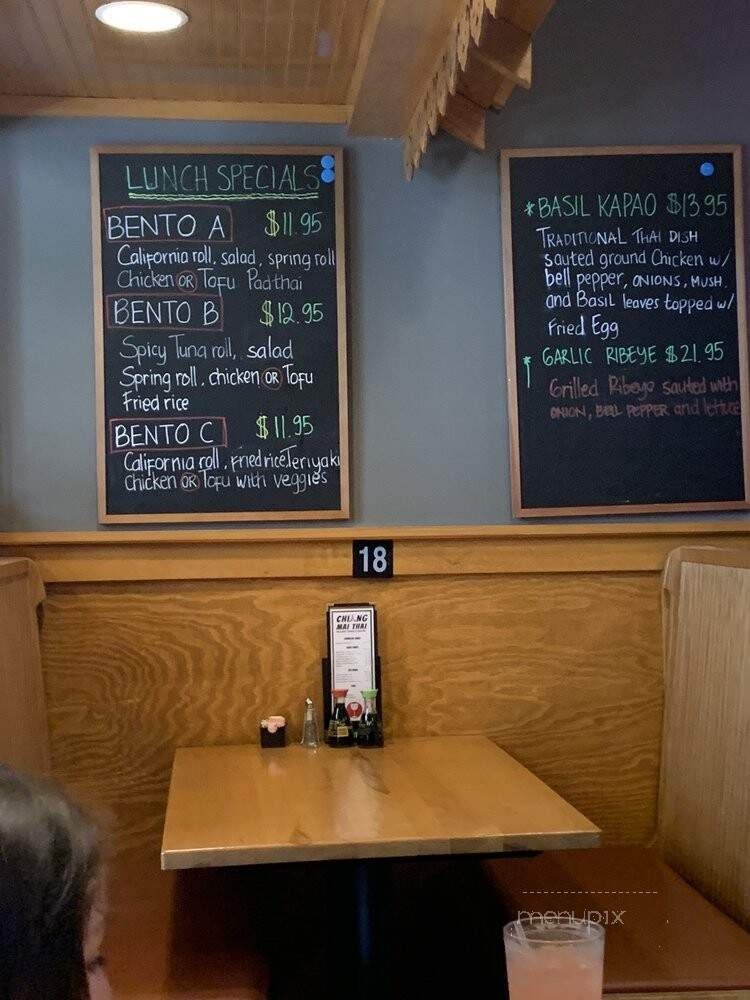 LUNCH SPECIALS
BENTO A $11.95
California roll, salad, spring roll
Chicken OR Tofu Padthai
BENTO B $12.95
Spicy Tuna roll, salad
Spring roll, chicken OR Tofu
Fried rice
BENTO C $11.95
California roll, fried rice, Teriyaki
chicken OR Tofu with veggies
* BASIL KAPAO $13.95
TRADITIONAL THAI DISH
sauted ground Chicken w/
bell pepper, ONIONS, MUSH.
and Basil leaves topped w/
Fried Egg
* GARLIC RIBEYE $21.95
Grilled Ribeye sauted with
ONION, BELL PEPPER and lettuce
18
CHIANG
MAI THAI
menupix